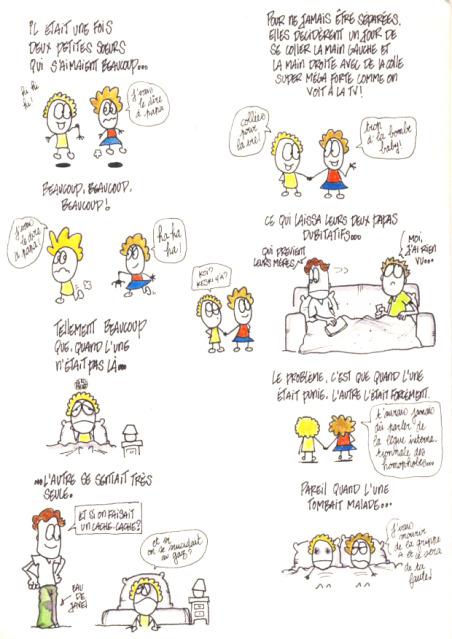 IL ETAIT UNE FOIS
DEUX PETITES SOEURS
QUI S'AIMAIENT BEAUCOUP...
hi hi
hi!
J'vais
le dire
à papa
BEAUCOUP, BEAUCOUP,
BEAUCOUP!
J'vais
le dire
à papa!
ha ha
ha!
TELLEMENT BEAUCOUP
QUE, QUAND L'UNE
N'ÉTAIT PAS LÀ...
...L'AUTRE SE SENTAIT TRÈS
SEULE.
ET SI ON FAISAIT
UN CACHE-CACHE?
et si
on se suicidait
au gaz?
EAU
DE
JAVEL
POUR NE JAMAIS ÊTRE SÉPARÉES,
ELLES DÉCIDÈRENT UN JOUR DE
SE COLLER LA MAIN GAUCHE ET
LA MAIN DROITE AVEC DE LA COLLE
SUPER MÉGA FORTE COMME ON
VOIT À LA TV!
collées
pour
la vie!
trop
d'la bombe
baby!
CE QUI LAISSA LEURS DEUX PAPAS
DUBITATIFS...
QUI PRÉVIENT
LEURS MÈRES?
MOI,
J'AI RIEN
VU...
KOI?
KESKI Y'A?
LE PROBLÈME, C'EST QUE QUAND L'UNE
ÉTAIT PUNIE, L'AUTRE L'ÉTAIT FORCÉMENT.
t'aurais jamais
dû parler de
la ligue interna-
tionnale des
homophobes...
PAREIL QUAND L'UNE
TOMBAIT MALADE...
J'vais
mourir
de la grippe
A et ce sera
de ta
faute!